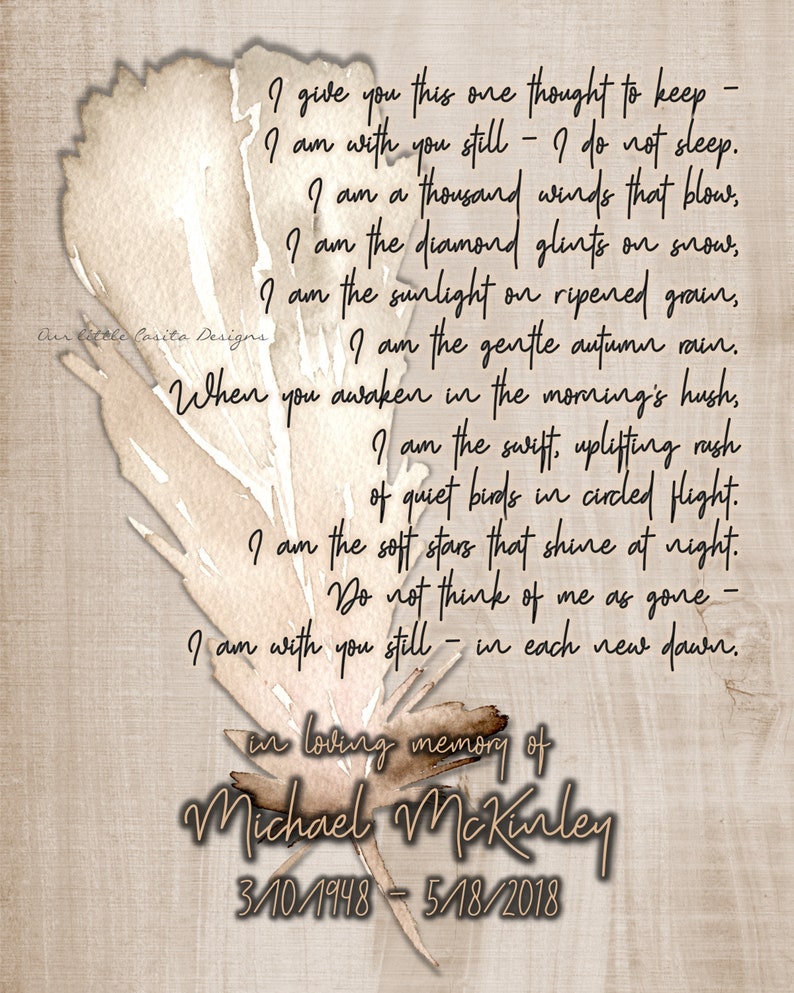 I give you this one thought to keep –
I am with you still – I do not sleep.
I am a thousand winds that blow,
I am the diamond glints on snow,
I am the sunlight on ripened grain,
Our little Casita Designs
I am the gentle autumn rain.
When you awaken in the morning's hush,
I am the swift, uplifting rush
of quiet birds in circled flight.
I am the soft stars that shine at night.
Do not think of me as gone –
I am with you still – in each new dawn.
in loving memory of
Michael McKinley
3/10/1948 – 5/18/2018